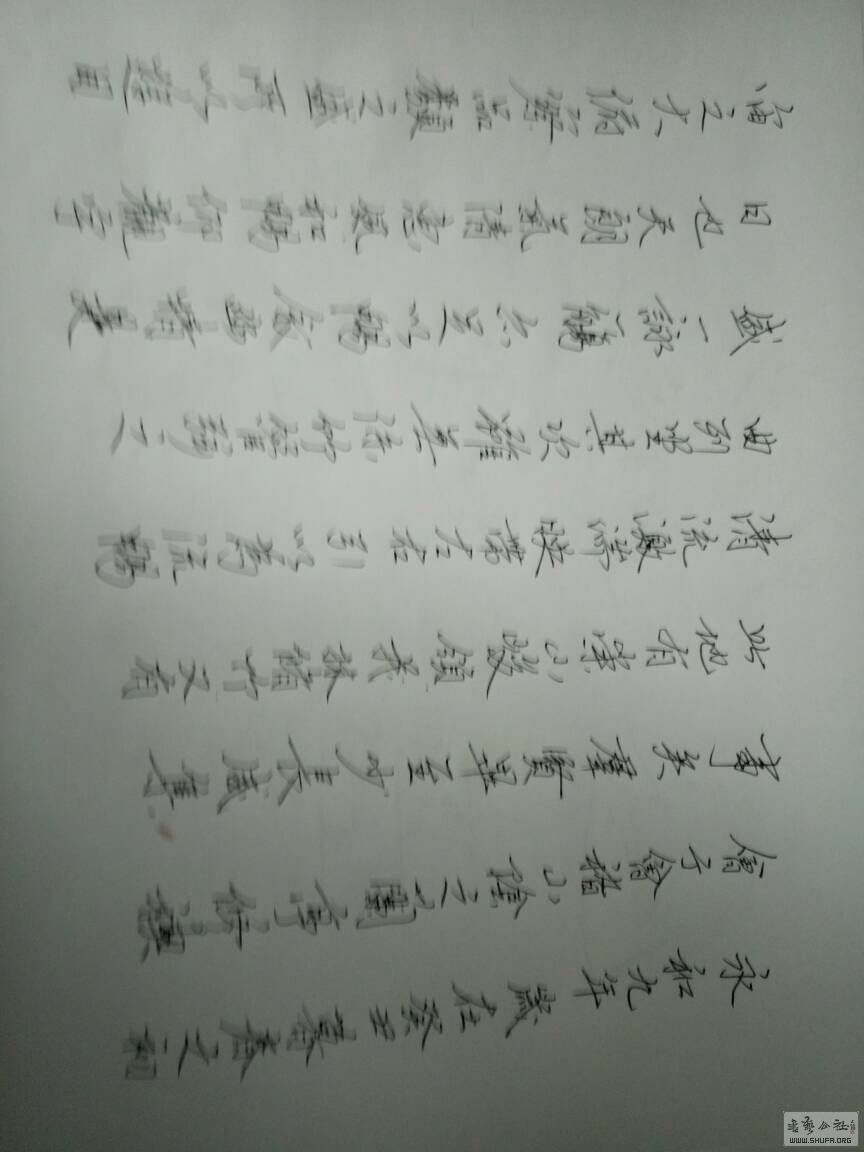 永和九年歲在癸丑暮春之初
會于會稽山陰之蘭亭修禊
事矣羣賢畢至少長咸集
此地有崇山峻領茂林脩竹又有
清流激湍映帶左右引以為流觴
曲列坐其次雖無絲竹管弦之
盛一詠一觴亦足以暢敘幽情是
日也天朗氣清惠風和暢仰觀宇
宙之大俯察品類之盛所以遊目
書藝公社
WWW.SHUFA.ORG